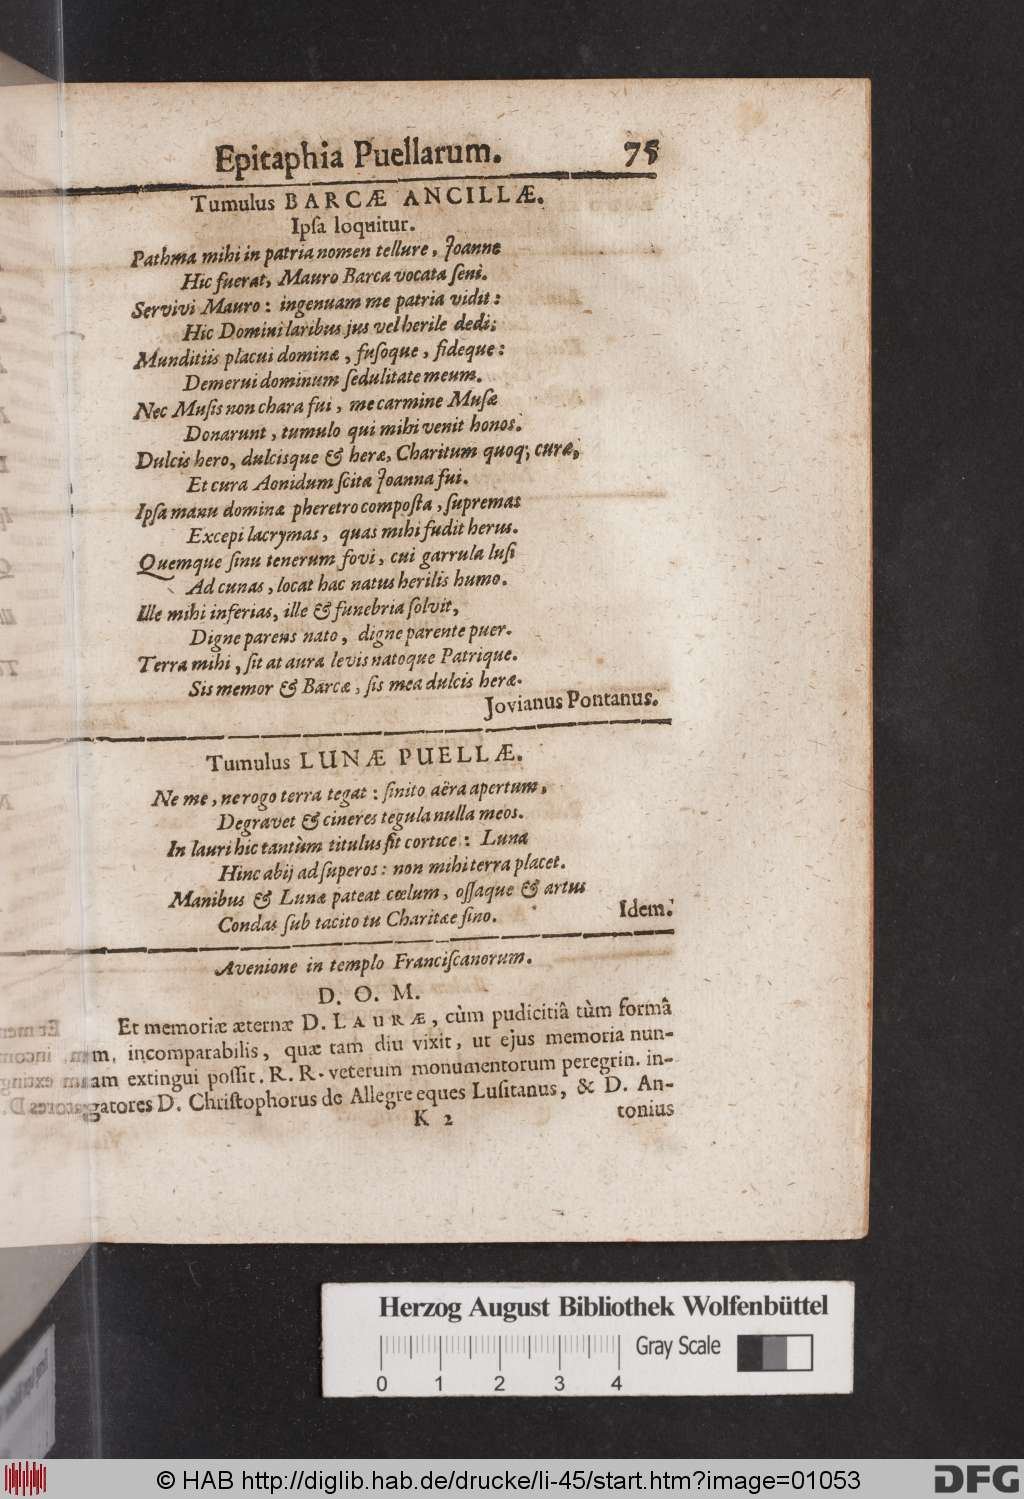 Epitaphia Puellarum. 75
Tumulus BARCÆ ANCILLÆ.
Ipſa loquitur.
Pathma mihi in patria nomen tellure, Joanne
Hic fuerat, Mauro Barca vocata ſeni.
Servivi Mauro: ingenuam me patria vidit:
Hic Domini laribus jus vel herile dedi;
Munditiis placui dominæ, fuſoque, fideque:
Demerui dominum ſedulitate meum.
Nec Muſis non chara fui, me carmine Muſæ
Donarunt, tumulo qui mihi venit honos.
Dulcis hero, dulcisque & heræ, Charitum quoq; curæ,
Et cura Aonidum ſcita Joanna fui.
Ipſa manu dominæ pheretro compoſta, ſupremas
Excepi lacrymas, quas mihi fudit herus.
Quemque ſinu tenerum fovi, cui garrula luſi
Ad cunas, locat hac natus herilis humo.
Ille mihi inferias, ille & funebria ſolvit,
Digne parens nato, digne parente puer.
Terra mihi, ſit at aura levis natoque Patrique.
Sis memor & Barcæ, ſis mea dulcis heræ.
Jovianus Pontanus.
Tumulus LUNÆ PUELLÆ.
Ne me, ne rogo terra tegat: ſinito aëra apertum,
Degravet & cineres tegula nulla meos.
In lauri hic tantùm titulus ſit cortice: Luna
Hinc abij ad ſuperos: non mihi terra placet.
Manibus & Lunæ pateat cœlum, oſſaque & artus
Condas ſub tacito tu Charitæe ſino.
Idem.
Avenione in templo Franciſcanorum.
D. O. M.
Et memoriæ æternæ D. LAURÆ, cùm pudicitiâ tùm formâ
m, incomparabilis, quæ tam diu vixit, ut ejus memoria nun-
am extingui poſſit. R. R. veterum monumentorum peregrin. in-
gatores D. Chriſtophorus de Allegre eques Luſitanus, & D. An-
K 2 tonius
Herzog August Bibliothek Wolfenbüttel
0 1 2 3 4 Gray Scale
© HAB http://diglib.hab.de/drucke/li-45/start.htm?image=01053
DFG